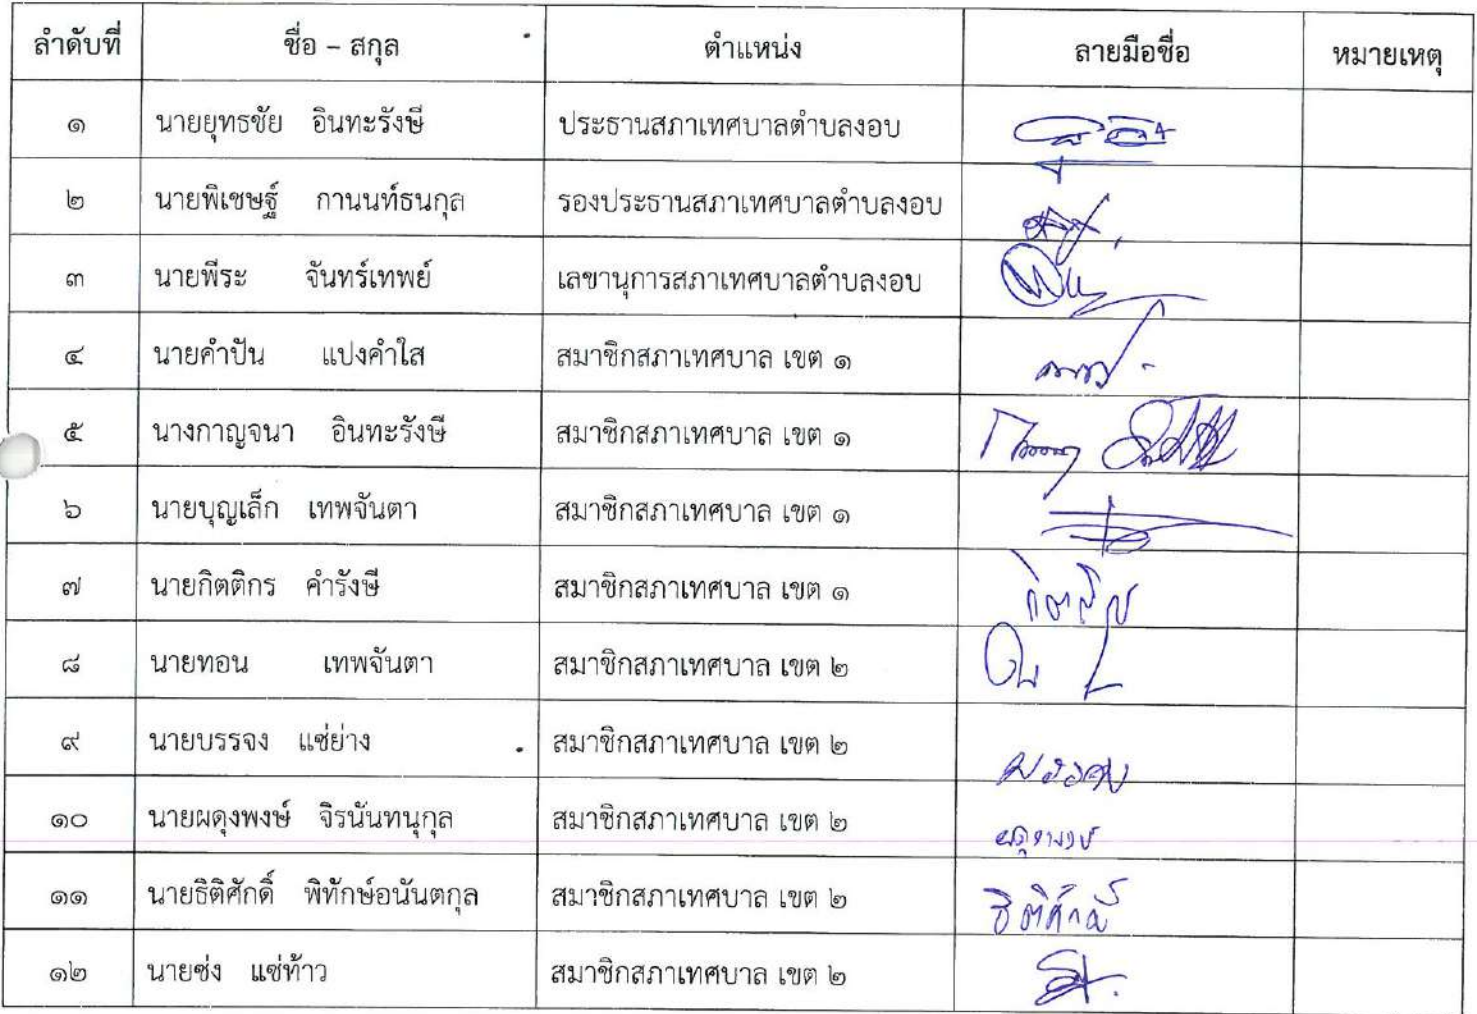 ลำดับที่ ชื่อ – สกุล ตำแหน่ง ลายมือชื่อ หมายเหตุ
๑ นายยุทธชัย อินทะรังษี ประธานสภาเทศบาลตำบลงอบ
๒ นายพิเชษฐ์ กานนท์ธนกุล รองประธานสภาเทศบาลตำบลงอบ
๓ นายพีระ จันทร์เทพย์ เลขานุการสภาเทศบาลตำบลงอบ
๔ นายคำปัน แปงคำใส สมาชิกสภาเทศบาล เขต ๑
๕ นางกาญจนา อินทะรังษี สมาชิกสภาเทศบาล เขต ๑
๖ นายบุญเล็ก เทพจันตา สมาชิกสภาเทศบาล เขต ๑
๗ นายกิตติกร คำรังษี สมาชิกสภาเทศบาล เขต ๑
๘ นายทอน เทพจันตา สมาชิกสภาเทศบาล เขต ๒
๙ นายบรรจง แซ่ย่าง สมาชิกสภาเทศบาล เขต ๒
๑๐ นายผดุงพงษ์ จิรนันทนุกุล สมาชิกสภาเทศบาล เขต ๒ ผดุงพงษ์
๑๑ นายธิติศักดิ์ พิทักษ์อนันตกุล สมาชิกสภาเทศบาล เขต ๒ ธิติศักดิ์
๑๒ นายซ่ง แซ่ท้าว สมาชิกสภาเทศบาล เขต ๒